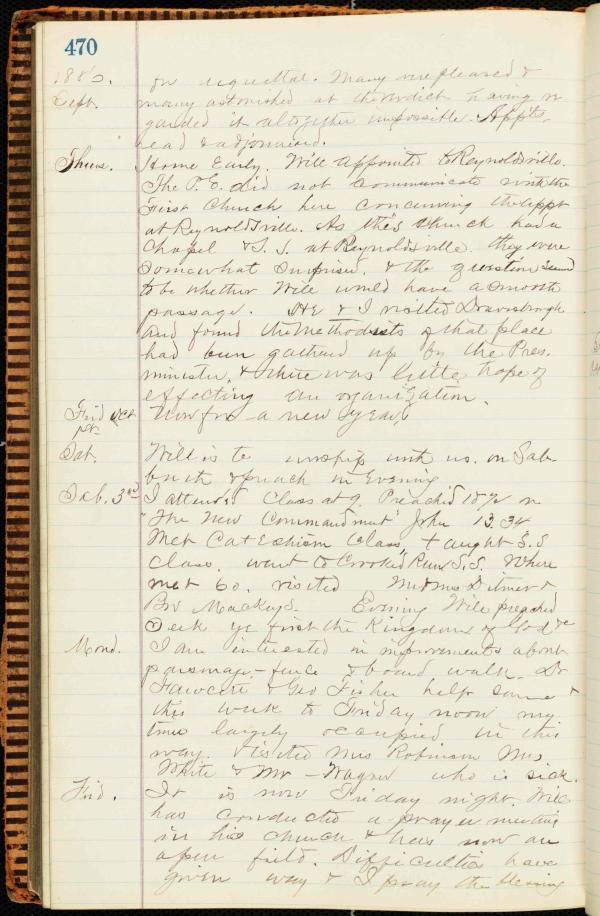 470
1880. or requittal. Many were pleased &
Sept. many astonished at the verdict having re
garded it altogether impossible. Appts.
read & adjourned.
Thurs. Home Early. Will appointed to Reynoldsville.
The P. E. did not communicate with the
First Church here concerning the appt
at Reynoldsville. As this Church had a
Chapel & S. S. at Reynoldsville. they were
somewhat surprised. & the question seemed
to be whether Will would have a smooth
passage. He & I visited Dravosburgh
and found the Methodists of that place
had been gathered up by the Pres.
minister, & there was little hope of
effecting an organization.
Frid Oct 1st Now for a new year.
Sat. Will is to worship with us. on Sab-
bath & preach in Evening
Sab. 3rd I attended Class at 9. Preached 10½ on
"The New Commandment" John 13.34
Met Catechism Class, taught S.S
class. went to Crooked Run S.S. where
met 60. visited Mr & Mrs Ditmer &
Bro Mackeys. Evening Will preached
Seek ye first the Kingdom of God &c
Mond. I am interested in improvements about
parsonage - fence & board walk. Dr
Fawcett & Geo Fisher help some &
this week to Friday noon my
time largely occupied in this
way. Visited Mrs Robinson Mrs
White & Mr - Wagner who is sick.
Frid. It is now Friday night. Will
has conducted a prayer meeting
in his church & has now an
open field. Difficulties have
given way & I pray the blessing